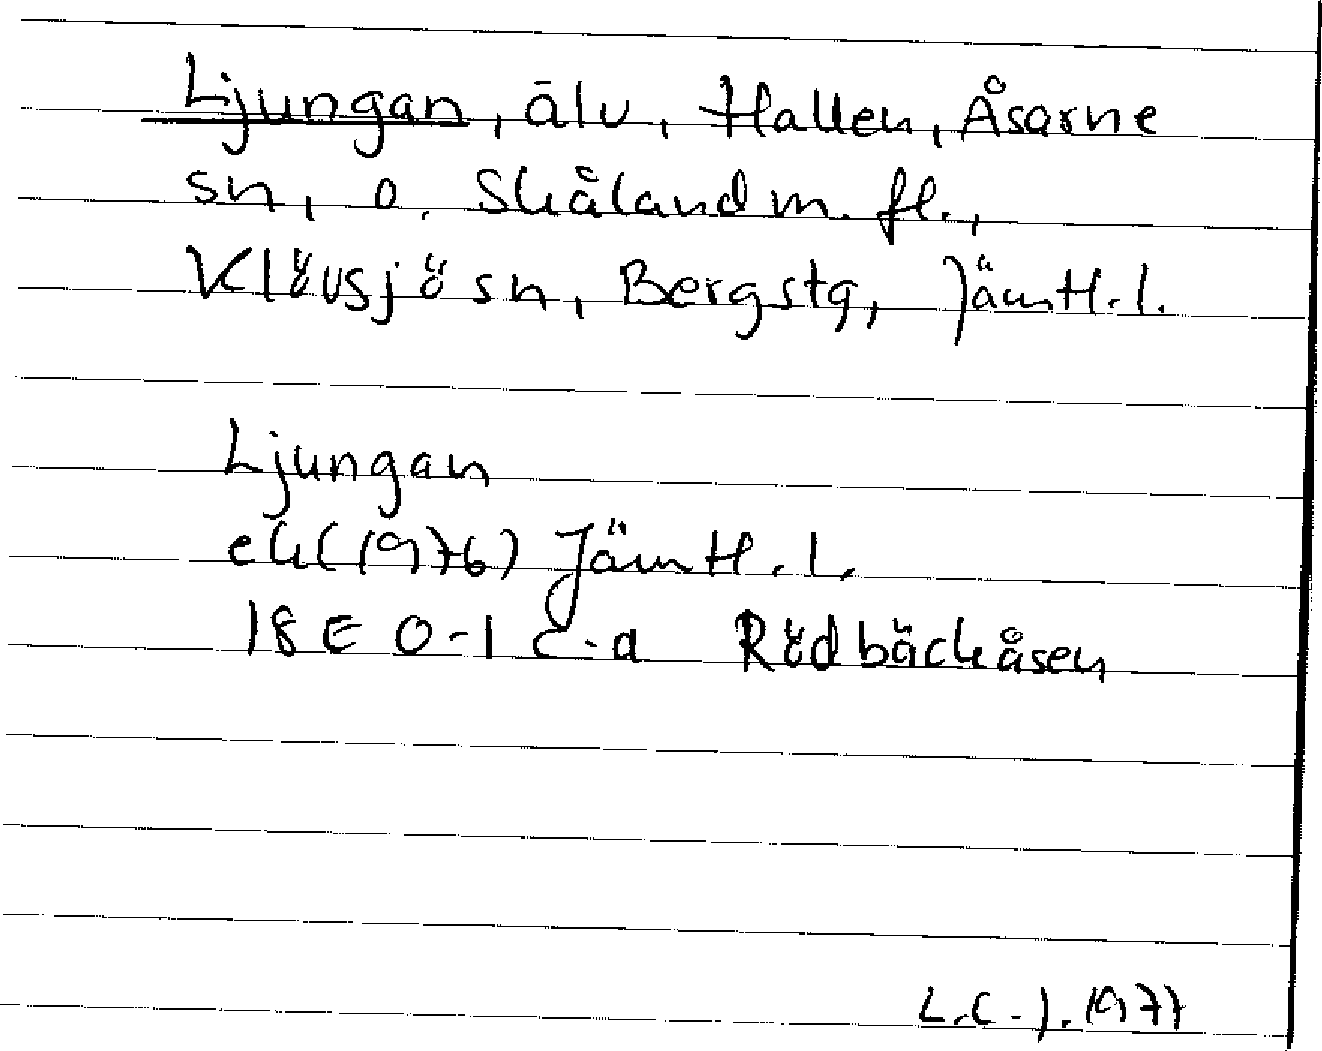 Ljungan, älv, Hallen, Åsarne
sn, o. Skåland m. fl.,
Klövsjö sn, Bergstg, Jämtl. l.
Ljungan
ek (1976) Jämtl. l.
18 E 0-1 c-d Rödbäckåsen
L.C-J. 1977